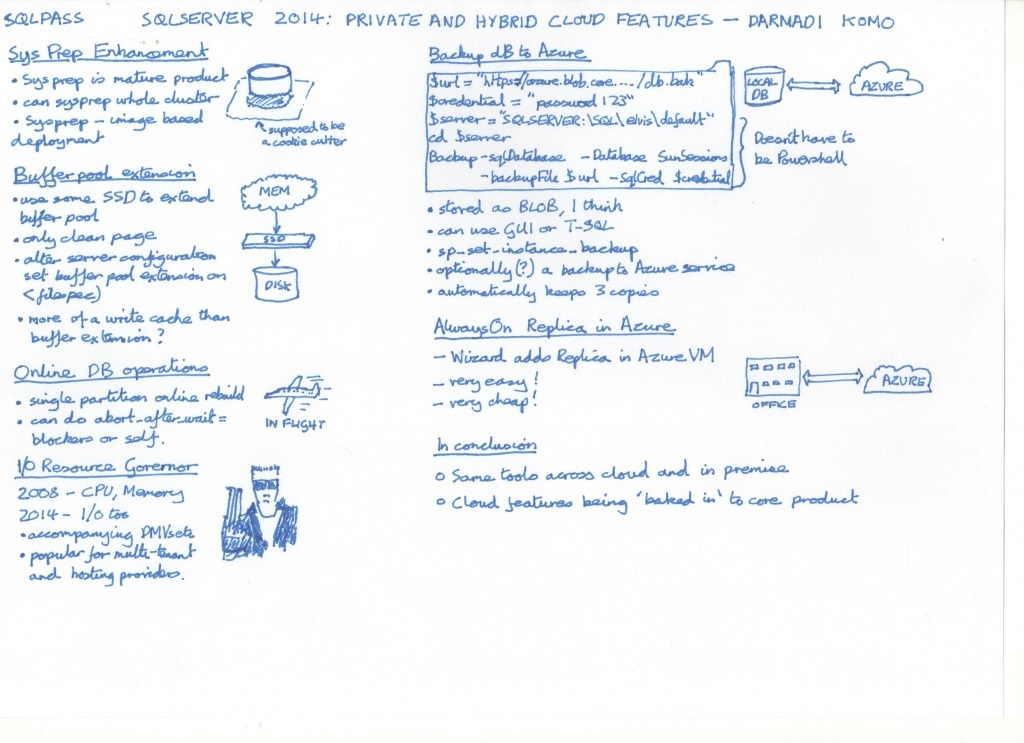 SQLPASS SQLSERVER 2014: PRIVATE AND HYBRID CLOUD FEATURES – DARMADI KOMO
Sys Prep Enhancement
• Sysprep is mature product
• can sysprep whole cluster
• Sysprep – image based
deployment
↑ supposed to be
a cookie cutter
Buffer pool extension
• use some SSD to extend
buffer pool
• only clean page
• alter server configuration
set buffer pool extension on
<filespec>
• more of a write cache than
buffer extension?
MEM
SSD
DISK
Online DB operations
• single partition online rebuild
• can do abort_after_wait =
blockers or self.
IN FLIGHT
I/O Resource Governor
2008 – CPU, Memory
2014 – I/O too
• accompanying DMV sets
• popular for multi-tenant
and hosting providers.
Backup dB to Azure
$url = "https://azure.blob.core..../db.bak"
$credential = "password 123"
$server = "SQLSERVER:\SQL\elvis\default"
cd $server
Backup-sqlDatabase -Database SunSessions
-backupFile $url -SqlCred $credential
LOCAL
DB
AZURE
Doesn't have to
be Powershell
• stored as BLOB, I think
• can use GUI or T-SQL
• sp_set_instance_backup
• optionally(?) a backup to Azure service
• automatically keeps 3 copies
AlwaysOn Replica in Azure
– Wizard adds Replica in Azure VM
– very easy!
– very cheap!
OFFICE
AZURE
In conclusion
o Same tools across cloud and in premise
o Cloud features being 'baked in' to core product